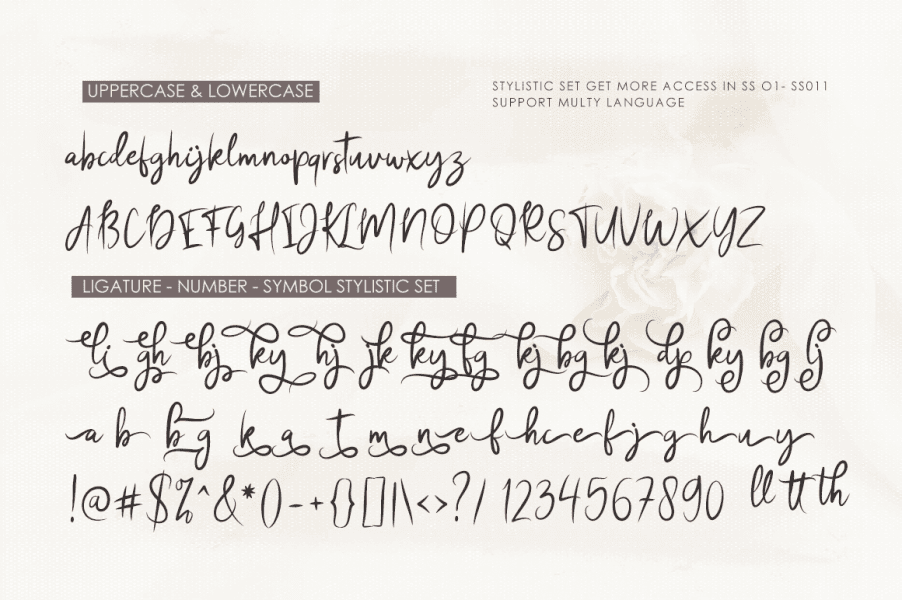 UPPERCASE & LOWERCASE
STYLISTIC SET GET MORE ACCESS IN SS O1- SS011
SUPPORT MULTY LANGUAGE
abcdefghijklmnopqrstuvwxyz
ABCDEFGHIJKLMNOPQRSTUVWXYZ
LIGATURE - NUMBER - SYMBOL STYLISTIC SET
li gh bj ky hj jk ky fg kj bg kj dp ky bg lj
a b b g k a t m n e f h c e f j g h u y
!@#$%^&*()-+{}[]|\<>?/ 1234567890 ll tt th